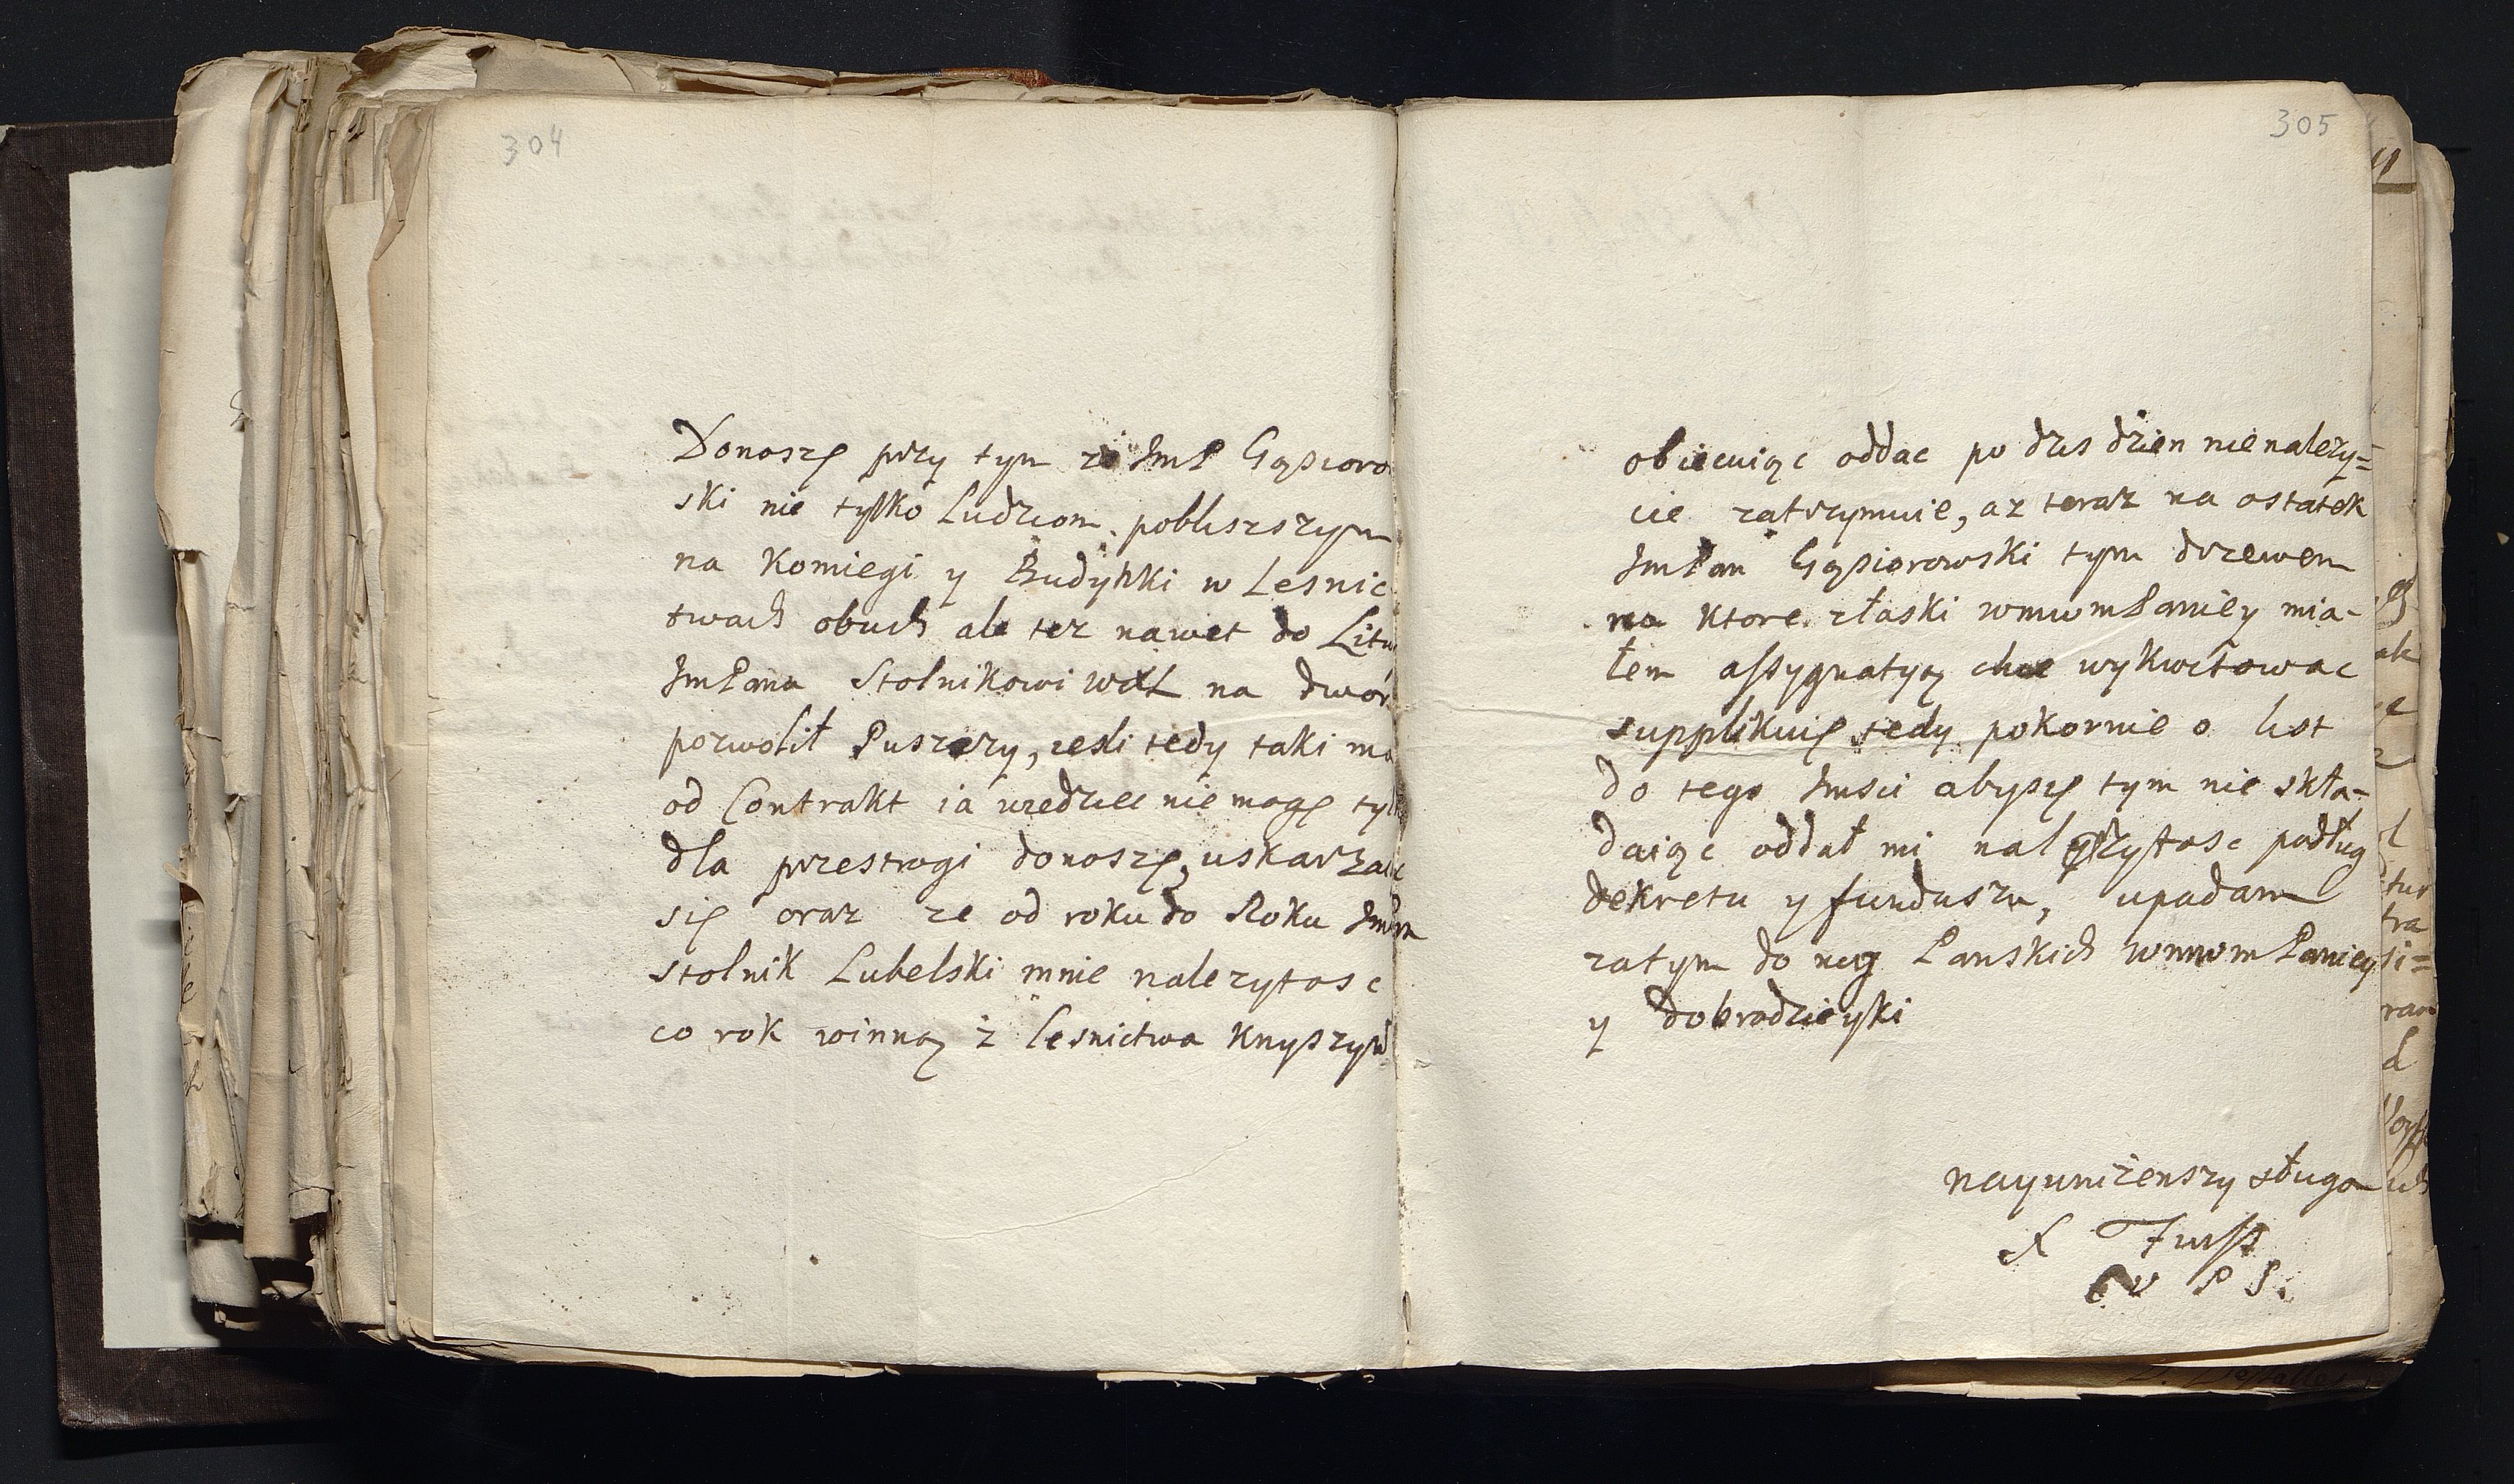 304
Donoszę przy tym że ImP Gąsioro
ski nie tylko Ludziom pobliszszym
na Komiegi y Budynki w Lesnic
twach obuch ale tez nawet do Litw
ImPanu Stolnikowi WXL na dwór
pozwolił Puszczy, iesli tedy taki ma
od Contrakt ia wiedziec nie mogę tyl
dla przestrogi donoszę, uskarżaiąc
się oraz ze od roku do Roku ImPan
Stolnik Lubelski mnie nalezytosc
co rok winną z lesnictwa Knyszyń
305
obiecuiąc oddac po dzis dzien nienalezy=
cie zatrzymuie, az teraz na ostatek
ImPan Gąsiorowski tym drzewem
na ktore złaski wmwmPaniey mia-
łem assygnatyą chce wykwitowac
supplikuię tedy pokornie o list
do tego Imsci abyszę tym nie skła-
daiąc oddał mi nalezytosc podług
dekretu y funduszu, upadam
zatym do nug Panskich wmwmPaniey
y dobrodzieyki
nayunizenszy sługa
X
P P.